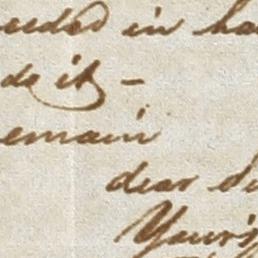 eeded in ha
do it –
emain
dear Si
Your's